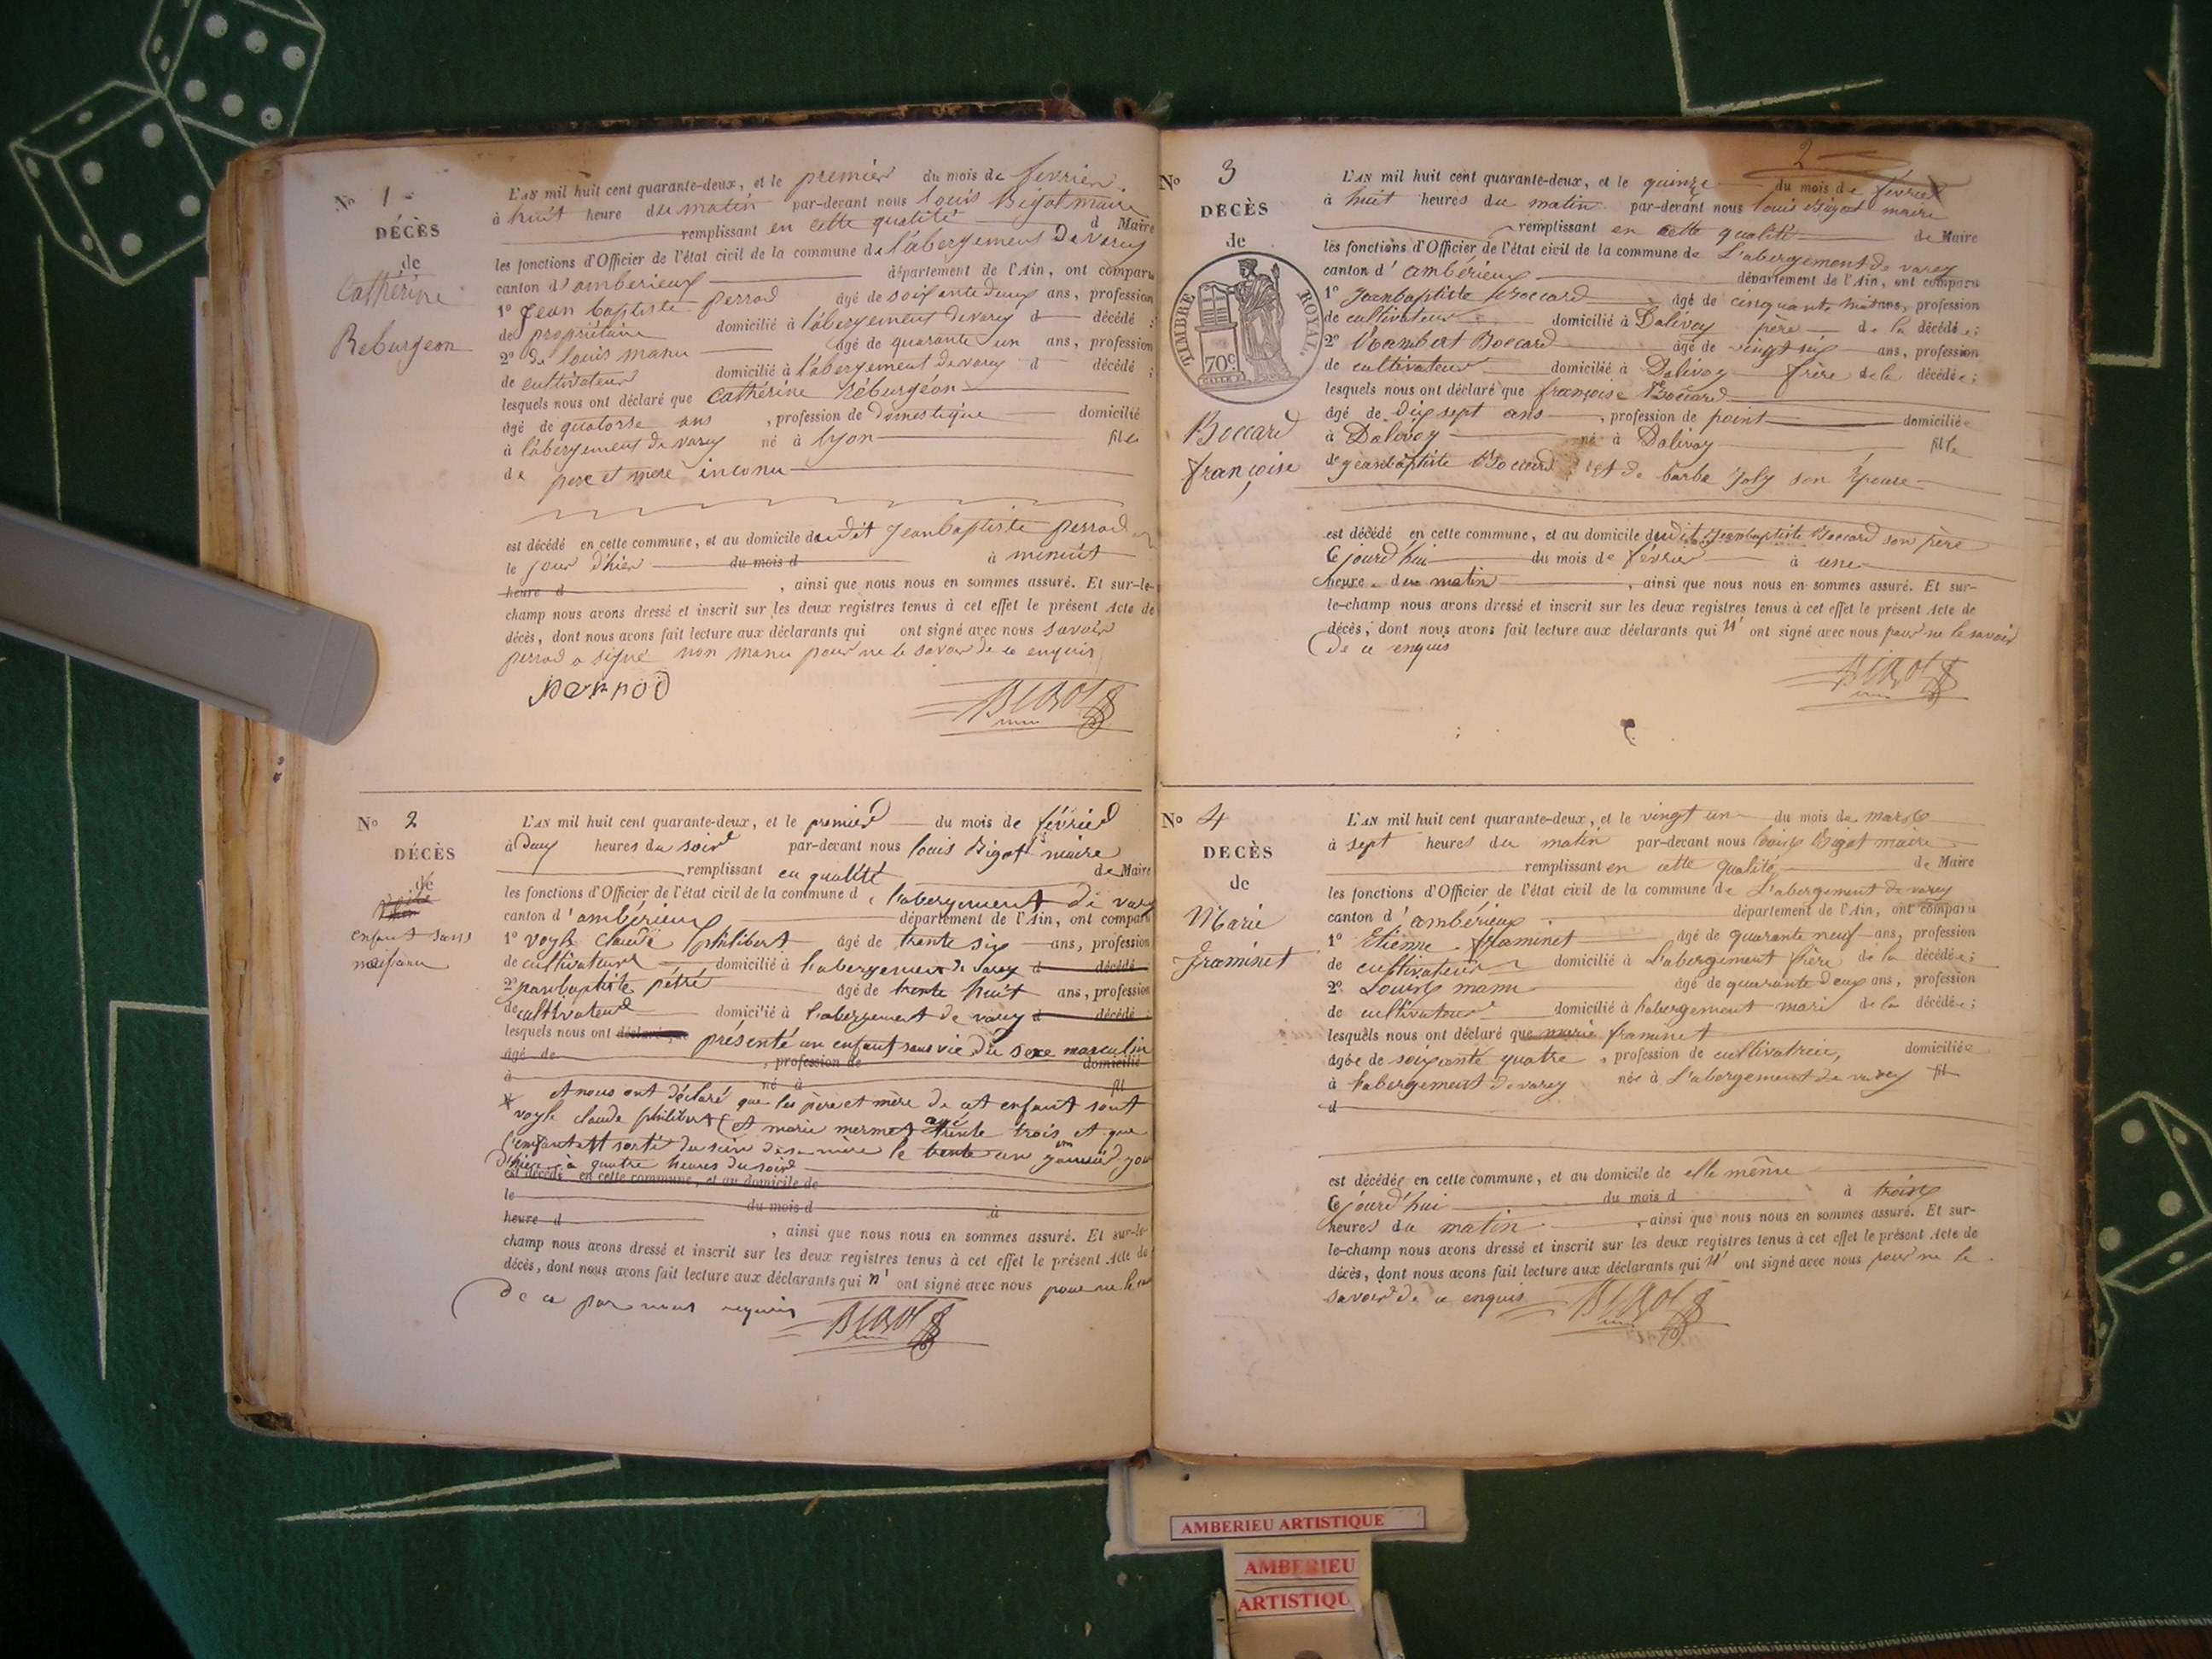 No 1
DÉCÈS
de
Cathérine
Reburgeon
L'AN mil huit cent quarante-deux, et le premier du mois de fevrier
à huit heure du matin par-devant nous louis Bigot maire
remplissant en cette qualité d Maire
les fonctions d'Officier de l'état civil de la commune de l'abergement De varey
canton d'amberieux département de l'Ain, ont comparu
1° Jean baptiste perrod âgé de soixante deux ans, profession
de propriétaire domicilié à l'abergement de varey d décédé ;
2° de louis manu âgé de quarante un ans, profession
de cultivateur domicilié à l'abergement de varey d décédé ;
lesquels nous ont déclaré que Cathérine Réburgeon
âgé de quatorse ans , profession de domestique domicilié
à l'abergement de varey né à lyon fille
de pere et mere inconu
est décédé en cette commune, et au domicile dudit Jean baptiste perrod
le jour d'hier du mois d à minuit
heure d , ainsi que nous nous en sommes assuré. Et sur-le-
champ nous avons dressé et inscrit sur les deux registres tenus à cet effet le présent Acte de
décès, dont nous avons fait lecture aux déclarants qui ont signé avec nous savoir
perrod a signé non manu pour ne le savoir de ce enquis
perrod
BIGOT
No 2
DÉCÈS
de
enfant sans
L'AN mil huit cent quarante-deux, et le premier du mois de février
à deux heures du soir par-devant nous louis Bigot maire
remplissant en qualité de Maire
les fonctions d'Officier de l'état civil de la commune d l'abergement de varey
canton d'ambérieux département de l'Ain, ont comparu
1° voyle claude philibert âgé de trente six ans, profession
de cultivateur domicilié à l'abergement de varey d décédé
2° jeanbaptiste pétré âgé de trente huit ans, profession
de cultivateur domicilié à l'abergement de varey d décédé ;
lesquels nous ont déclaré que présenté un enfant sans vie du sexe masculin
âgé de , profession de domicilié
à né à fil
et nous ont déclaré que les père et mère de cet enfant sont
voyle claude philibert et marie mermet agé trente trois et que
l'enfant est sorti du sein de sa mère le trente un janvier jour
d'hier à quatre heures du soir
est décédé en cette commune, et au domicile de
le du mois d à
heure d , ainsi que nous nous en sommes assuré. Et sur-le-
champ nous avons dressé et inscrit sur les deux registres tenus à cet effet le présent Acte de
décès, dont nous avons fait lecture aux déclarants qui n' ont signé avec nous pour ne le
de ce par nous requis BIGOT
2
No 3
DÉCÈS
de
TIMBRE ROYAL.
70c.
Boccard
françoise
L'AN mil huit cent quarante-deux, et le quinze du mois de février
à huit heures du matin par-devant nous louis Bigot maire
remplissant en cette qualité de Maire
les fonctions d'Officier de l'état civil de la commune de L'abergement de varey
canton d'ambérieux département de l'Ain, ont comparu
1° Jeanbaptiste Boccard âgé de cinquante huit ans, profession
de cultivateur domicilié à Dalivoy père de la décédée ;
2° Rambert Boccard âgé de vingt six ans, profession
de cultivateur domicilié à Dalivoy frère de la décédée ;
lesquels nous ont déclaré que françoise Boccard
âgé de dix sept ans , profession de point domiciliée
à Dalivoy né à Dalivoy fille
de jeanbaptiste Boccard et de barbe Joly son Epouse
est décédé en cette commune, et au domicile dudit Jeanbaptiste Boccard son père
Cejourd'hui du mois de février à une
heure du matin , ainsi que nous nous en sommes assuré. Et sur-
le-champ nous avons dressé et inscrit sur les deux registres tenus à cet effet le présent Acte de
décès, dont nous avons fait lecture aux déclarants qui n' ont signé avec nous pour ne le savoir
De ce enquis
BIGOT
No 4
DÉCÈS
de
Marie
framinet
L'AN mil huit cent quarante-deux, et le vingt un du mois de mars
à sept heures du matin par-devant nous louis Bigot maire
remplissant en cette qualité de Maire
les fonctions d'Officier de l'état civil de la commune de L'abergement de varey
canton d'ambérieux département de l'Ain, ont comparu
1° Etienne framinet âgé de quarante neuf ans, profession
de cultivateur domicilié à L'abergement frère de la décédée ;
2° Louis manu âgé de quarante deux ans, profession
de cultivateur domicilié à l'abergement mari de la décédée ;
lesquels nous ont déclaré que marie framinet
âgée de soixante quatre , profession de cultivatrice, domiciliée
à l'abergement de varey née à L'abergement de varey fil
d
est décédée en cette commune, et au domicile de elle même
Cejourd'hui du mois d à trois
heures du matin , ainsi que nous nous en sommes assuré. Et sur-
le-champ nous avons dressé et inscrit sur les deux registres tenus à cet effet le présent Acte de
décès, dont nous avons fait lecture aux déclarants qui n' ont signé avec nous pour ne le
savoir de ce enquis BIGOT
AMBERIEU ARTISTIQUE
AMBERIEU
ARTISTIQU